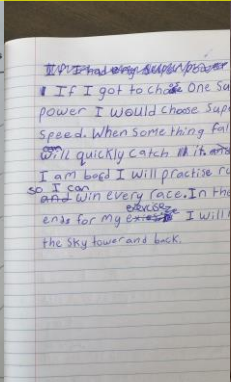 If I had any super power
If I got to chose One Su
power I would choose Supe
Speed. When Some thing fal
will quickly catch it. and
I am bord I will practise ru
so I can
and win every race. In the
exercise
ends for my I will r
the Sky tower and back.